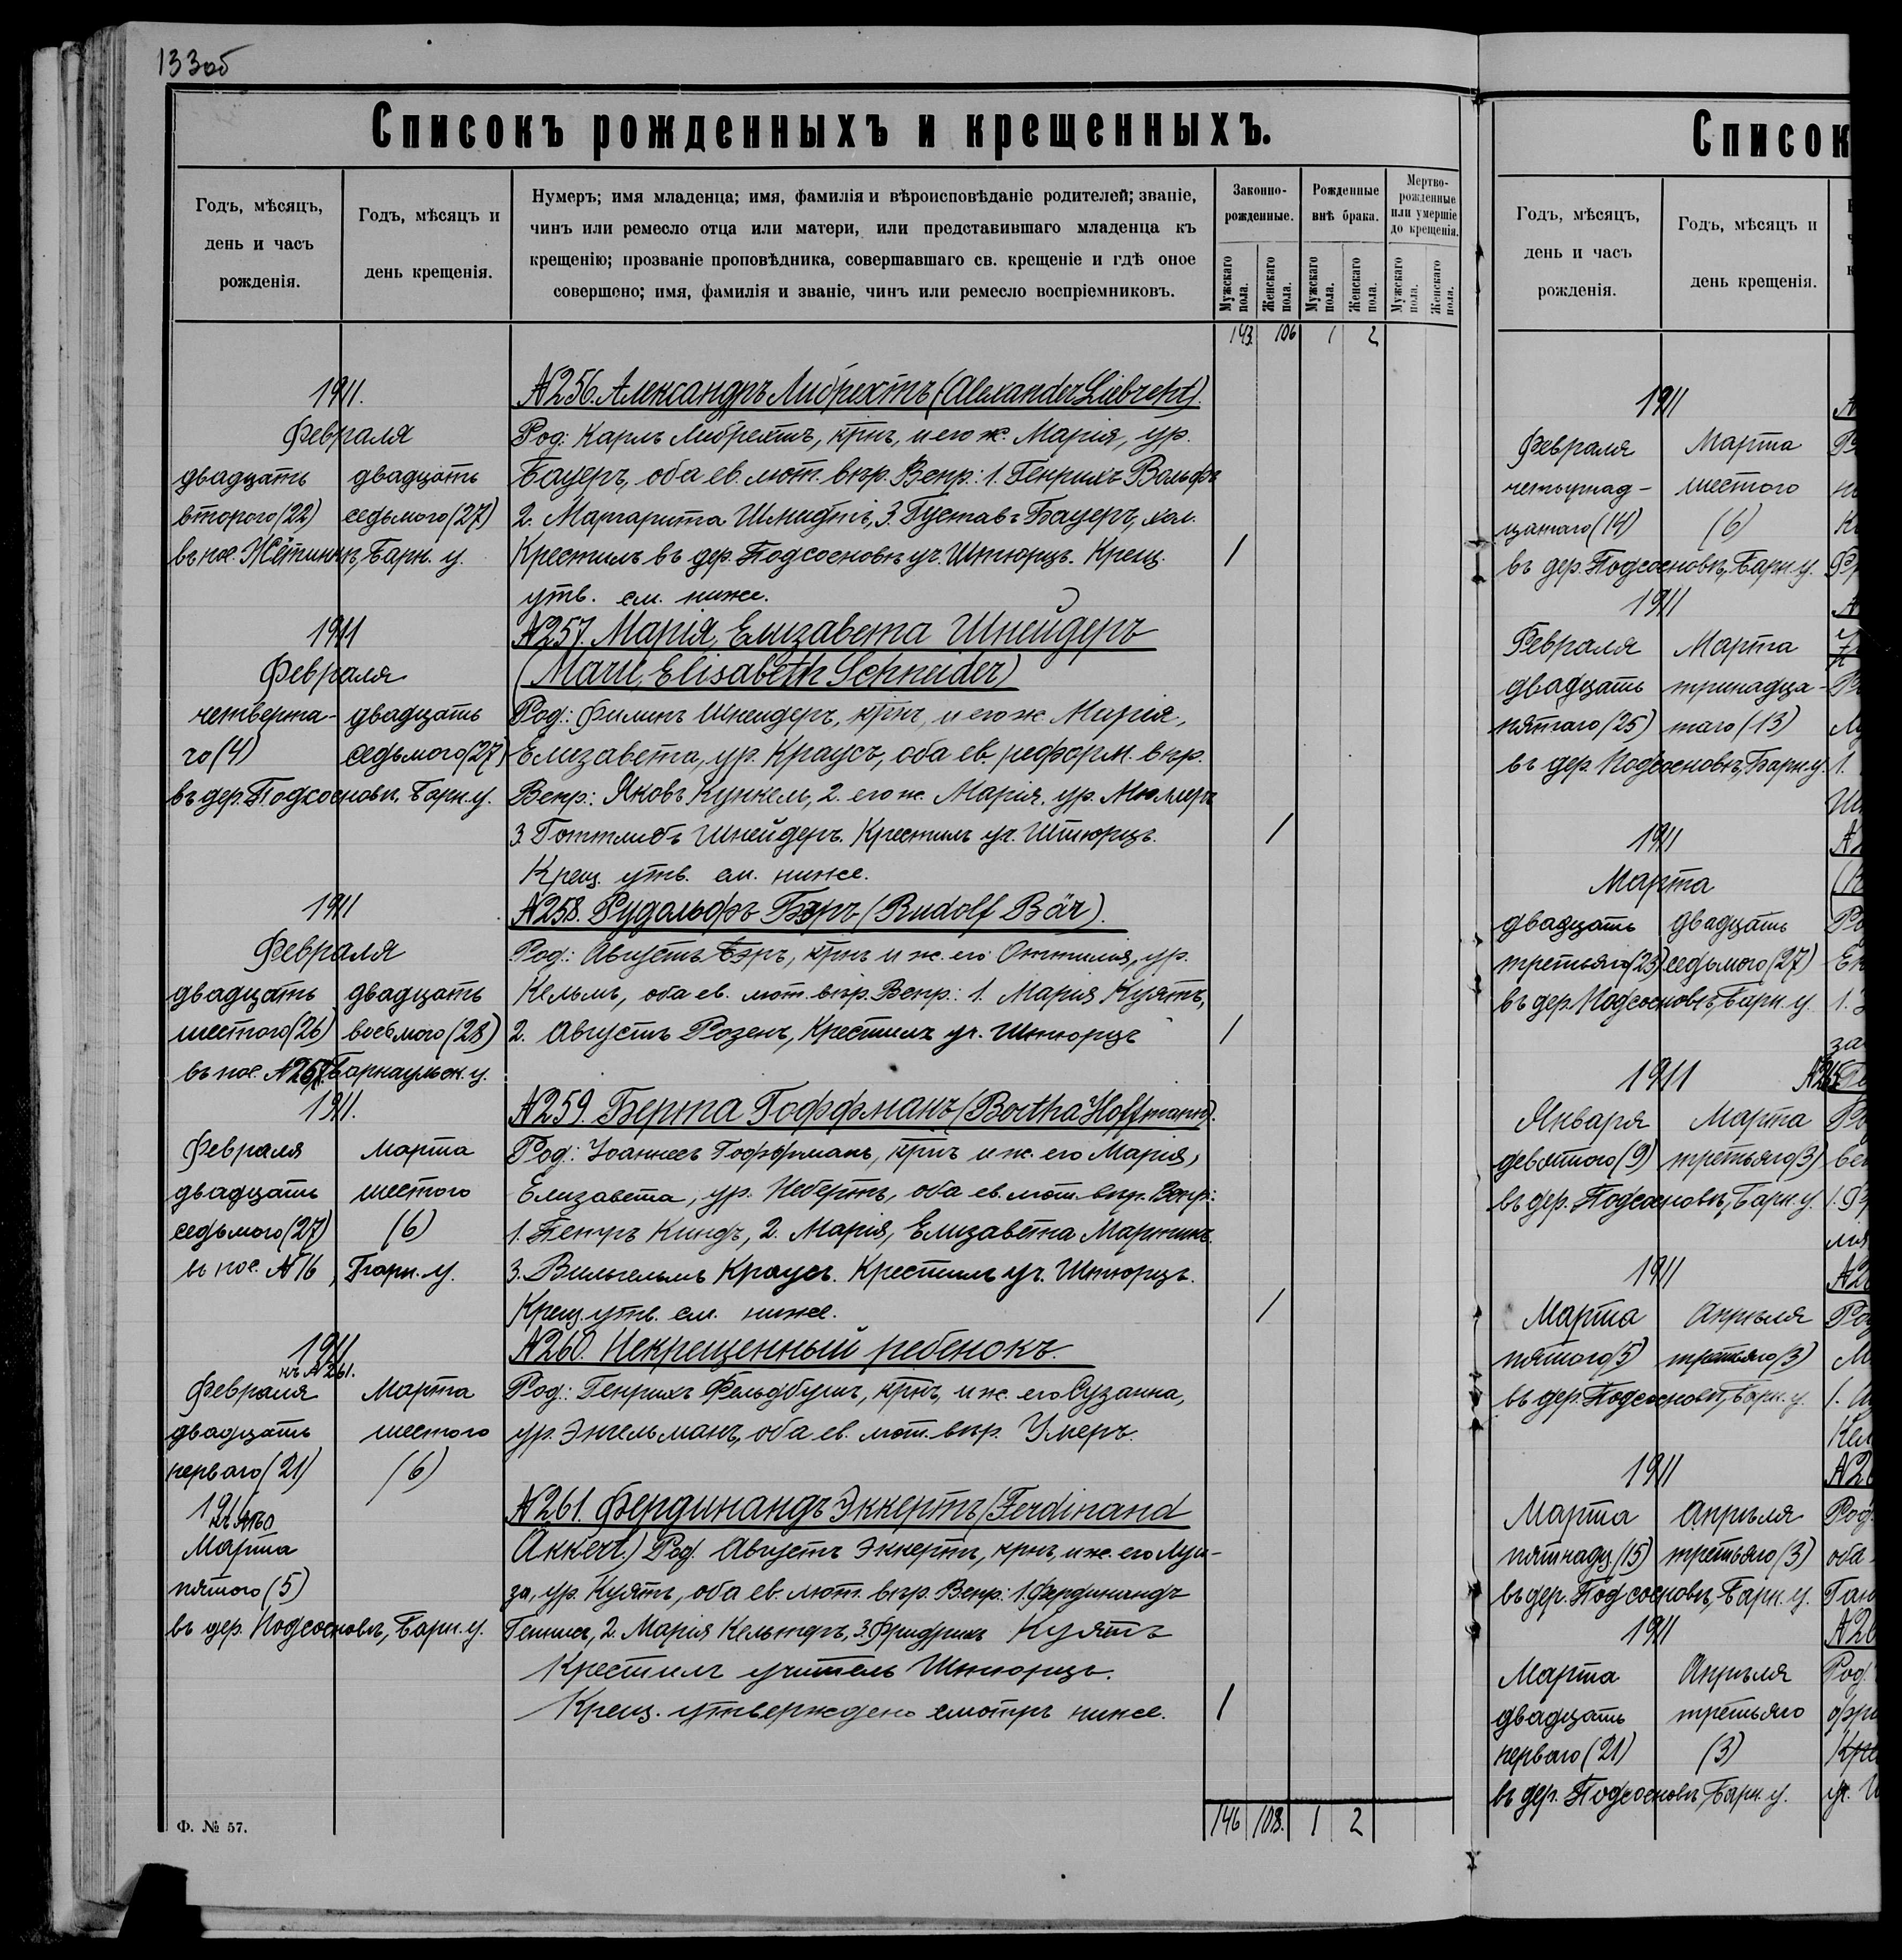 133об
Списокъ рожденныхъ и крещенныхъ.
Годъ, мѣсяцъ,
день и часъ
рожденія.
Годъ, мѣсяцъ и
день крещенія.
Нумеръ; имя младенца; имя, фамилія и вѣроисповѣданіе родителей; званіе,
чинъ или ремесло отца или матери, или представившаго младенца къ
крещенію; прозваніе проповѣдника, совершавшаго св. крещеніе и гдѣ оное
совершено; имя, фамилія и званіе, чинъ или ремесло воспріемниковъ.
Законно-
рожденные.
Рожденные
внѣ брака.
Мертво-
рожденные
или умершіе
до крещенія.
Мужскаго пола.
Женскаго пола.
Мужскаго пола.
Женскаго пола.
Мужскаго пола.
Женскаго пола.
143. 106 1 2
1911.
Февраля
двадцать
второго (22)
двадцать
седьмого (27)
въ пос. Барн. у.
№256. Александръ Либрехтъ (Alexander Liebrecht).
Род: Карлъ Либрехтъ, крнъ, и его ж. Марія, ур.
Бауеръ, оба ев. лют. вѣр. Вспр.: 1. Генрихъ Вольфъ
2. Маргарита Шмидтъ, 3. Густавъ Бауеръ, хол.
Крестилъ въ дер. Подсосновкѣ уч. Штюрцъ. Крещ.
утв. см. ниже.
1
1911
Февраля
четверта-
го (4)
двадцать
седьмого (27)
въ дер. Подсосновкѣ, Барн. у.
№257. Марія, Елизавета Шнейдеръ
(Marie, Elisabeth Schneider)
Род.: Филипъ Шнейдеръ, крнъ, и его ж. Марія,
Елизавета, ур. Краусъ, оба ев. реформ. вѣр.
Вспр.: Яковъ Кункель, 2. его ж. Марія, ур. Мюллеръ
3. Готтлибъ Шнейдеръ. Крестилъ уч. Штюрцъ.
Крещ. утв. см. ниже.
1
1911
Февраля
двадцать
шестого (26)
двадцать
восьмого (28)
въ пос. Барнаульск. у.
№258. Рудольфъ Бэръ (Rudolf Bär).
Род.: Августъ Бэръ, крнъ и ж. его Оттилія, ур.
Кельмъ, оба ев. лют. вѣр. Вспр.: 1. Марія Куятъ,
2. Августъ Розенъ, Крестилъ уч. Штюрцъ
1
1911.
Февраля
двадцать
седьмого (27)
Марта
шестого
(6)
въ пос. №16, Барн. у.
№259. Берта Гоффманъ (Bertha Hoffmann).
Род.: Іоаннесъ Гоффманъ, крнъ и ж. его Марія,
Елизавета, ур. Небертъ, оба ев. лют. вѣр. Вспр:
1. Петръ Киндъ, 2. Марія, Елизавета Мартинъ.
3. Вильгельмъ Краусъ. Крестилъ уч. Штюрцъ.
Крещ. утв. см. ниже.
1
1911
къ №261.
Февраля
двадцать
перваго (21)
Марта
шестого
(6)
№260. Некрещенный ребенокъ.
Род.: Генрихъ Фельдбушъ, крнъ, и ж. его Сузанна,
ур. Энгельманъ, оба ев. лют. вѣр. Умеръ.
Марта
пятого (5)
въ дер. Подсосновкѣ, Барн. у.
№261. Фердинандъ Эккертъ (Ferdinand
Äkkert.) Род. Августъ Эккертъ, крнъ, и ж. его Луи-
за, ур. Куятъ, оба ев. лют. вѣр. Вспр.: 1. Фердинандъ
2. Марія 3. Фридрихъ Куятъ
Крестилъ учитель Штюрцъ.
Крещ. утверждено смотри ниже.
1
146 108. 1 2
Ф. № 57.
Список
Годъ, мѣсяцъ,
день и часъ
рожденія.
Годъ, мѣсяцъ и
день крещенія.
1911
Февраля
четырнад-
цатаго (14)
Марта
шестого
(6)
въ дер. Подсосновкѣ, Барн. у.
1911
Февраля
двадцать
пятаго (25)
Марта
тринадца-
таго (13)
въ дер. Подсосновкѣ, Барн. у.
1911
Марта
двадцать
третьяго (23)
двадцать
седьмого (27)
въ дер. Подсосновкѣ, Барн. у.
1911
Января
девятого (9)
Марта
третьяго (3)
въ дер. Подсосновкѣ, Барн. у.
1911
Марта
пятого (5)
Апрѣля
третьяго (3)
въ дер. Подсосновкѣ, Барн. у.
1911
Марта
пятнадц. (15)
Апрѣля
третьяго (3)
въ дер. Подсосновкѣ, Барн. у.
1911
Марта
двадцать
перваго (21)
Апрѣля
третьяго
(3)
въ дер. Подсосновкѣ, Барн. у.